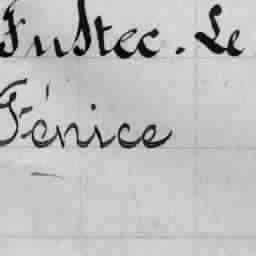 Fustec. Le
Fénice